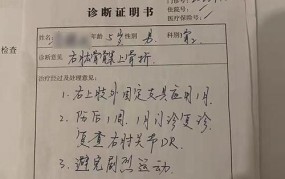 诊断证明书
住院号/
医疗保险号/
姓名 年龄 5岁 性别 男 科别
诊断意见:
右肱骨髁上骨折
检查
治疗经过及处理意见:
1. 右上肢外固定支具应用1月
2. 伤后1周、1月门诊复诊
复查右肘关节DR。
3. 避免剧烈运动